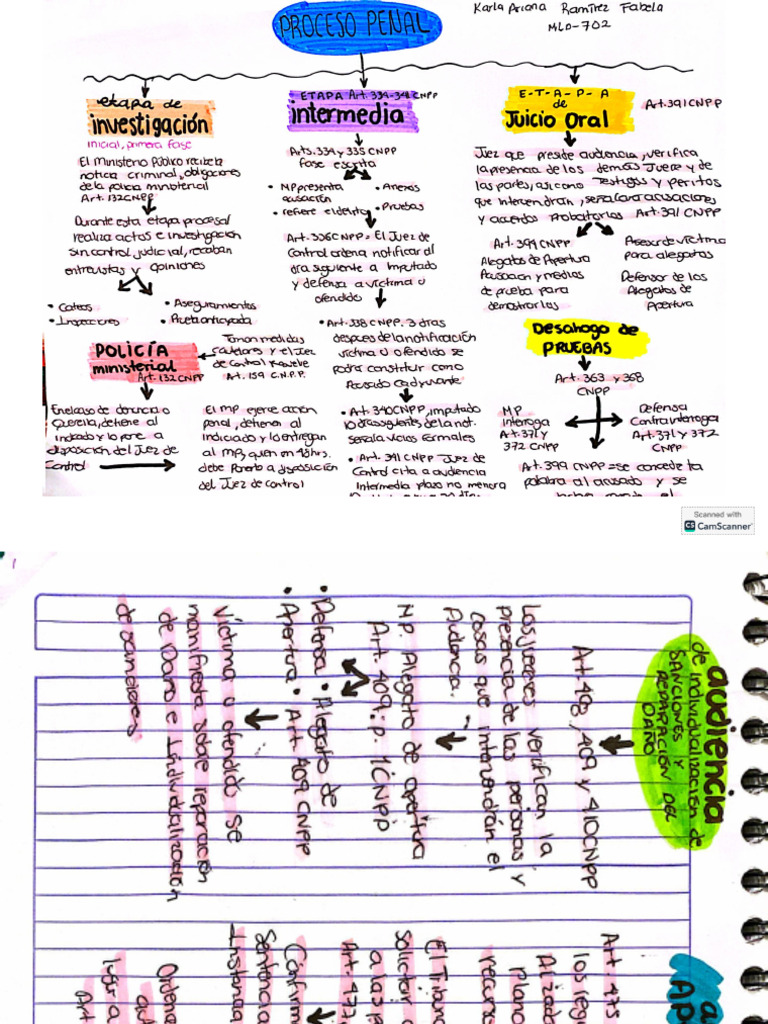 PROCESO PENAL
Karla Ariana Ramírez Fabela
MLD-702
etapa de
investigación
inicial, primera fase
El Ministerio Público recibe la
noticia criminal, obligaciones
de la policia ministerial
Art. 132 CNPP
Durante esta etapa procesal
realiza actos e investigación
sin control judicial, recaban
entrevistas y opiniones
• Cateos
• Inspecciones
• Aseguramientos
• Prueba anticipada
POLICÍA
ministerial
Art. 132 CNPP
Toman medidas
cautelares y el Juez
de Control resuelve
Art. 159 C.N.P.P.
En el caso de denuncia o
querella, detiene al
indiciado y lo pone a
disposición del Juez de
Control
El MP ejerce acción
penal, detienen al
indiciado y lo entregan
al MP, quien en 48hrs.
debe ponerlo a disposición
del Juez de control
ETAPA Art. 334-341 CNPP
intermedia
Arts. 334 y 335 CNPP
fase escrita
• MP presenta
acusación
• refiere el delito
• Anexos
• Pruebas
Art. 336 CNPP= El Juez de
Control ordena notificar al
día siguiente a imputado
y defensa a víctima u
ofendido
• Art. 338 CNPP. 3 días
despues de la notificación
víctima u ofendido se
podrá constituir como
Acusado coadyuvante
• Art. 340 CNPP, imputado
10 días sguientes de la not.
señala vicios formales
• Art. 341 CNPP Juez de
Control cita a audiencia
Intermedia plazo no menor a
E-T-A-P-A
de
Juicio Oral
Art. 391 CNPP
Juez que preside audiencia, verifica
la presencia de los demás Juece y de
las partes, asi como testigos y peritos
que intervendrán, señalara acusaciones
y acuerdos probatorios Art. 391 CNPP
Art. 394 CNPP
Alegatos de Apertura
Acusacion y medios
de prueba para
demostrarlas
Asesor de víctima
para alegatos
Defensor de los
Alegatos de
Apertura
Desahogo de
PRUEBAS
Art. 363 y 368
CNPP
MP
Interroga
Art. 371 y
372 CNPP
Defensa
Contrainterroga
Art. 371 y 372
CNPP
Art. 399 CNPP = se concede la
palabra al acusado y se
Scanned with
CS CamScanner
audiencia
de individualización de
SANCIONES Y
REPARACIÓN DEL
DAÑO
Art. 408, 409 y 410 CNPP
Los jueces verifican la
presencia de las personas y
cosas que intervendrán el
Audiencia.
MP. Alegato de apertura
Art. 409: p. 1 CNPP
• Defensa • Alegato de
Apertura • Art 409 CNPP
Víctima u ofendido se
manifiesta sobre reparación
de Daño e Individualización
de sanciones
Art. 475
los
recurso
El Tribuna
Solicitar
a las p
Art. 477
Confirm
Sentencia
Instancia
Ordena
Art